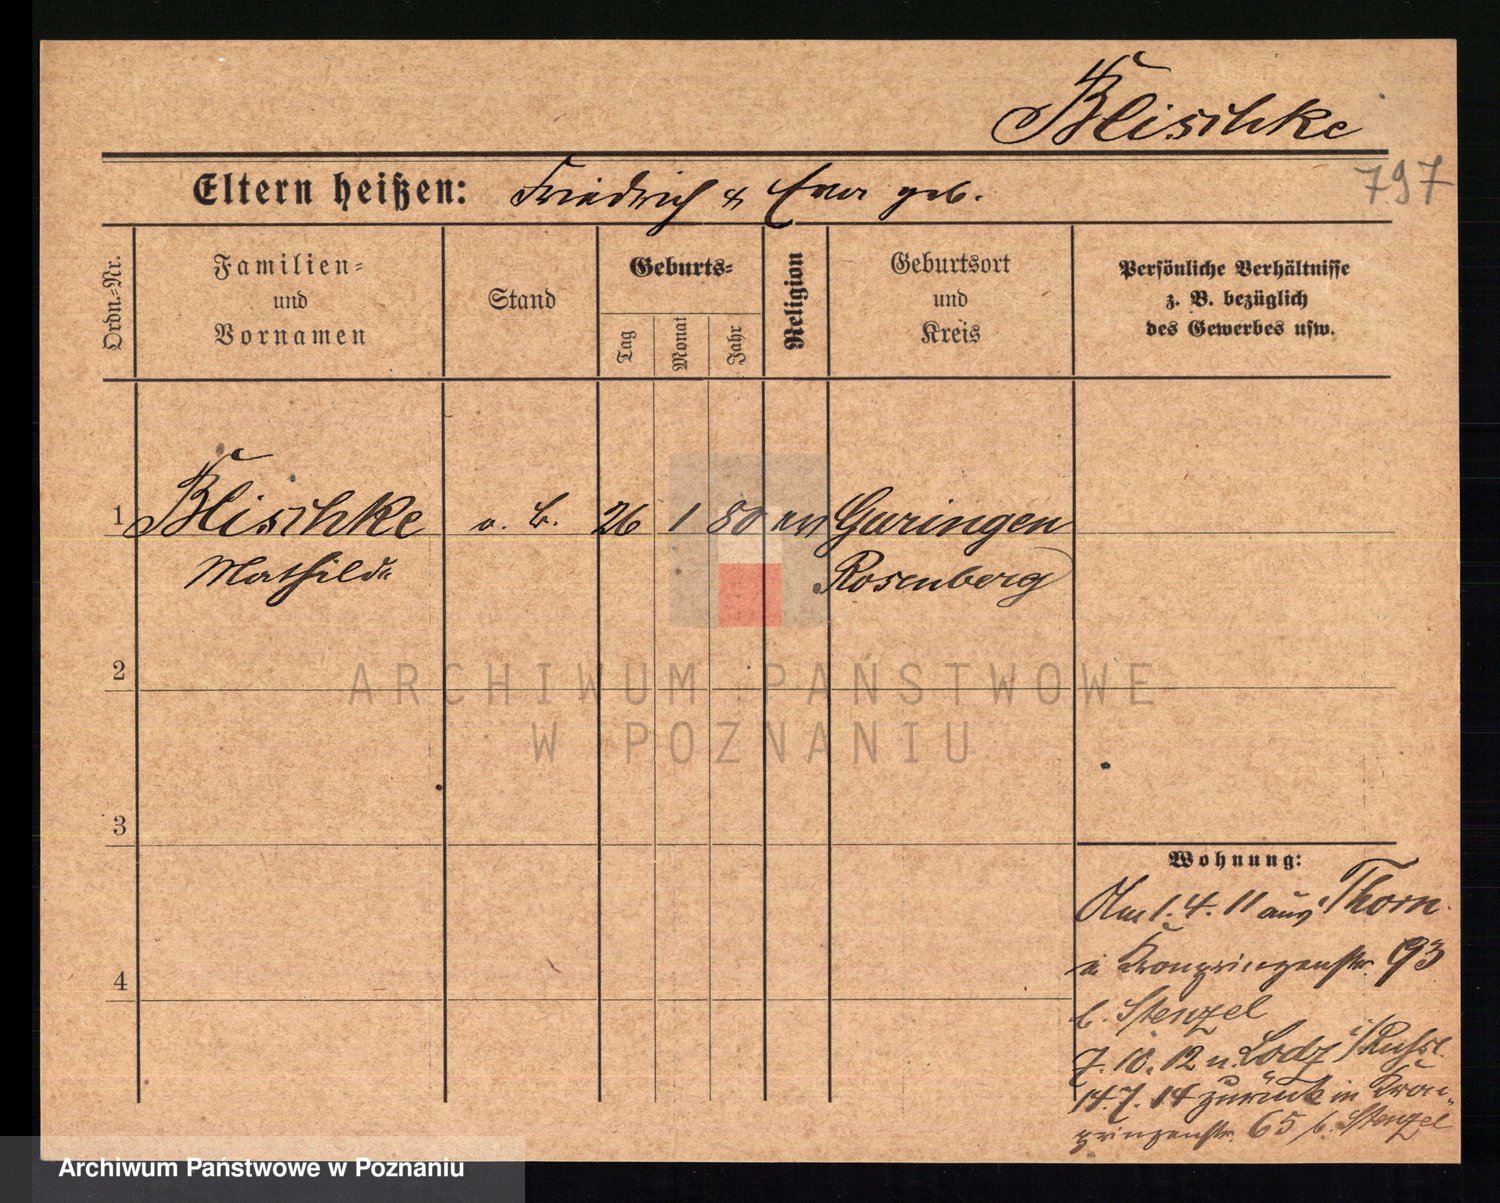 Blischke
797
Eltern heißen: Friedrich & Eva geb.
Ordn.-Nr.
Familien-
und
Vornamen
Stand
Geburts-
Tag
Monat
Jahr
Religion
Geburtsort
und
Kreis
Persönliche Verhältnisse
z. B. bezüglich
des Gewerbes usw.
1 Blischke o. b. 26 1 80 ev Guringen
Mathilde Rosenberg
2
3
4
ARCHIWUM PAŃSTWOWE
W POZNANIU
Wohnung:
Am 1. 4. 11 aus Thorn.
in Kronprinzenstr. 93
b. Stenzel
7. 10. 12 n. Lodz i/Russl.
14. 7. 14 zurück in Kron-
prinzenstr. 65 b. Stenzel
Archiwum Państwowe w Poznaniu